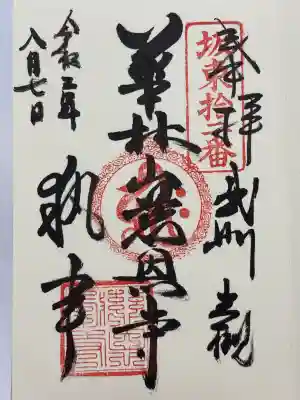 奉拝 武州 岩槻
坂東拾二番
華林山慈恩寺
執事
令和二年
八月七日